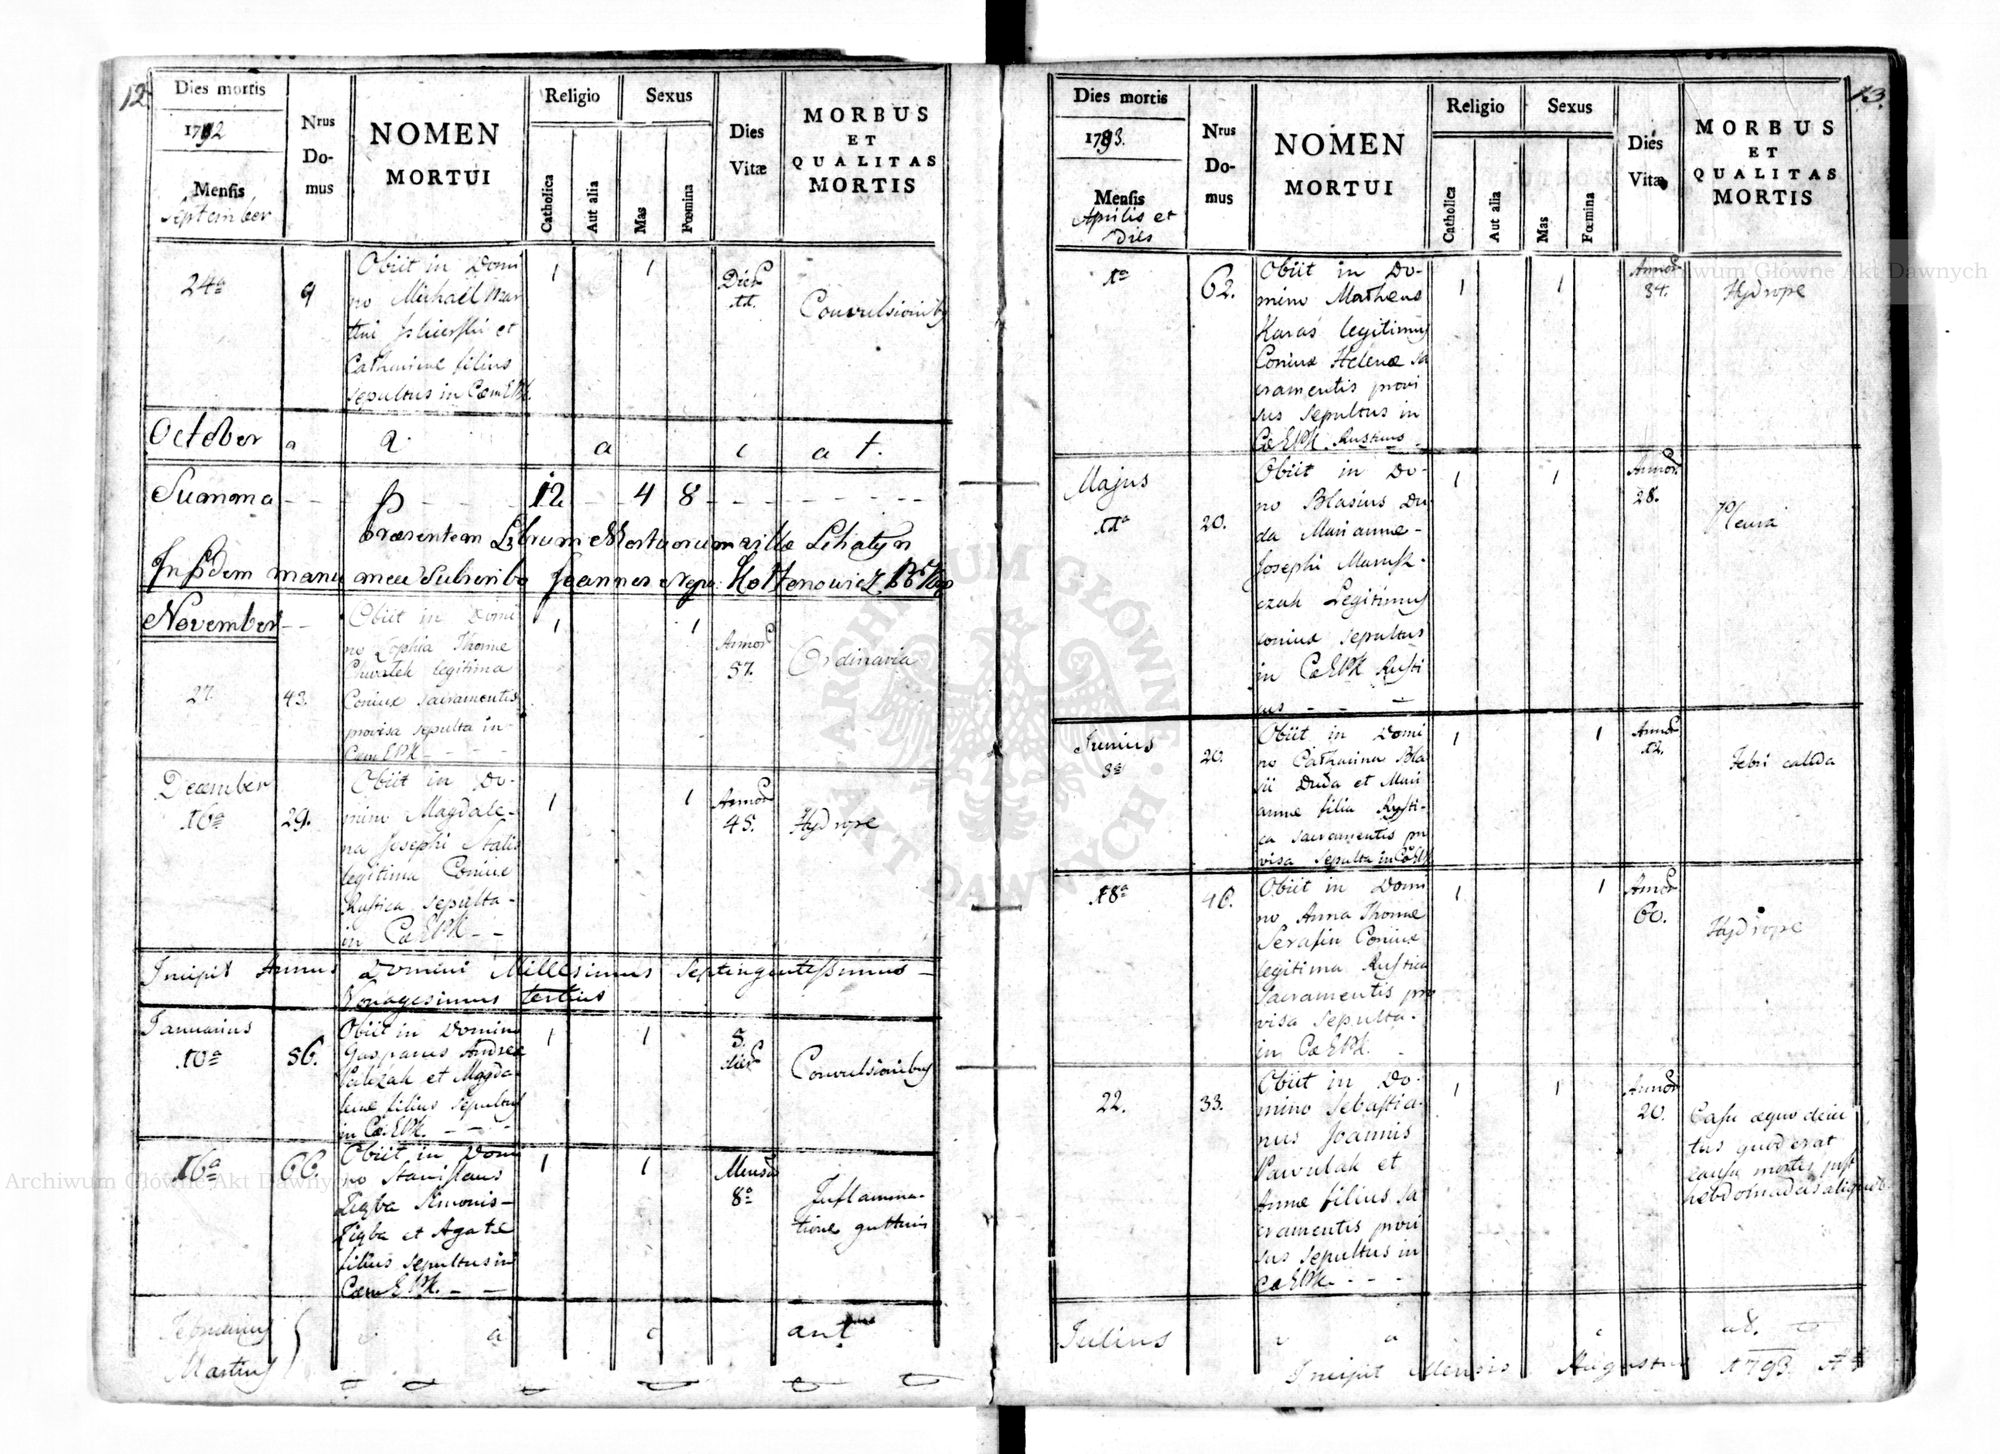 12
Dies mortis
1792
Mensis
September
Nrus
Do-
mus
NOMEN
MORTUI
Religio
Catholica
Aut alia
Sexus
Mas
Fœmina
Dies
Vitæ
MORBUS
ET
QUALITAS
MORTIS
24a
9
Obiit in Domi
no Michael
et
Catharinæ filius
sepultus in
1
1
Dier
11.
Convulsionibus
October
a
Summa
12
4
8
Præsentem Librum Mortuorum villæ Lihatyn
manu mea Subscribo Joannes
November
27.
43.
Obiit in Domi
no Zophia Thomæ
legitima
Coniux sacramentis
provisa sepulta in
1
1
Annor
57.
Ordinaria
December
16a
29.
Obiit in Do-
mino Magdale-
na Josephi
legitima Coniux
Rustica sepulta
in
1
1
Annor
45.
Hydrope
Incipit Annus Domini Millesimus Septingentessimus
Nonagesimus tertius
Januarius
10a
56.
Obiit in Domino
Gasparus Andreæ
et Magda-
lenæ filius sepultus
in
1
1
5.
dier
Convulsionibus
16a
66.
Obiit in Domi
no Stanislaus
Zięba Simonis
Zięba et Agatæ
filius sepultus in
1
1
Mens
8a
Inflamma-
tione gutturis
Februarius
Martius
13.
Dies mortis
1793.
Mensis
Aprilis et
dies
Nrus
Do-
mus
NOMEN
MORTUI
Religio
Catholica
Aut alia
Sexus
Mas
Fœmina
Dies
Vitæ
MORBUS
ET
QUALITAS
MORTIS
1a
62.
Obiit in Do-
mino Matheus
Karaś legitimus
Coniux Helenæ sa
cramentis provi
sus sepultus in
Rusticus
1
1
Annor
34.
Hydrope
Majus
11a
20.
Obiit in Do-
no Blasius Du-
da Marianne
Josephi
Legitimus
coniux sepultus
in Rusti
cus
1
1
Annor
28.
Pleura
Junius
3a
20.
Obiit in Domi
no Catharina Bla
sii Duda et Mari
annæ filia Rusti-
ca sacramentis pro
visa sepulta in
1
1
Annor
12.
Febri calida
18a
46.
Obiit in Domi
no Anna Thomæ
Serafin Coniux
legitima Rustica
Sacramentis pro
visa sepulta
in
1
1
Annor
60.
Hydrope
22.
33.
Obiit in Do-
mino Sebastia-
nus Joannis
Pawulak et
Annæ filius sa
cramentis provi
sus sepultus in
1
1
Annor
20.
Casu equo deiec
tus quod erat
causa mortis post
Julius
Incipit Mensis Augustus 1793
ARCHIWUM GŁÓWNE AKT DAWNYCH
Archiwum Główne Akt Dawnych
Archiwum Główne Akt Dawnych